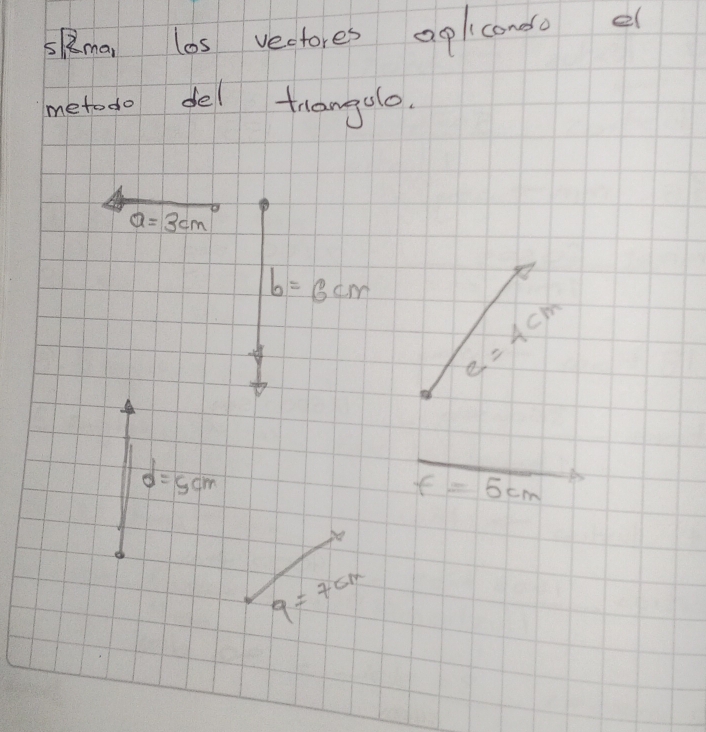 suma los vectores aplicando el
metodo del triangulo.
a = 3cm
b = 6cm
d = 5cm
f = 5cm
= 7cm